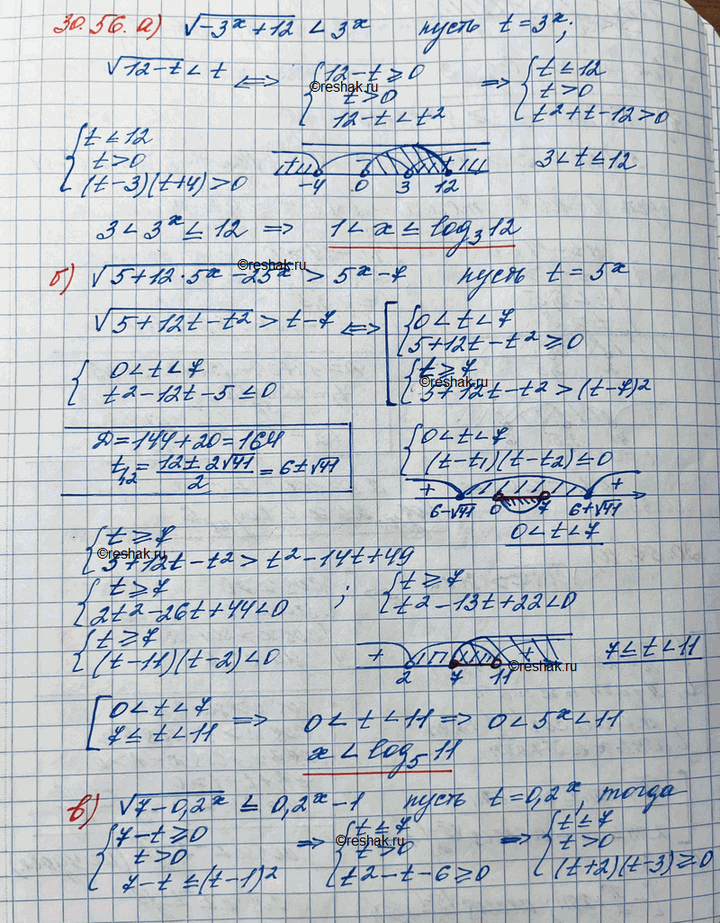 30.56. а) √(-3^x+12) < 3^x пусть t=3^x;
√(12-t) < t ⟺ { 12-t≥0 t>0 12-t<t² ⟹ { t≤12 t>0 t²+t-12>0
{ t≤12 t>0 (t-3)(t+4)>0 -4 0 3 12 3<t≤12
3<3^x≤12 ⟹ 1<x≤log₃12
б) √(5+12·5^x-25^x) > 5^x-7 пусть t=5^x
√(5+12t-t²) > t-7 ⟺ [ { 0<t<7 5+12t-t²≥0 { t≥7 5+12t-t²>(t-7)²
{ 0<t<7 t²-12t-5≤0
D=144+20=164
t₁,₂ = (12±2√41)/2 = 6±√41
{ 0<t<7 (t-t₁)(t-t₂)≤0
+ + 6-√41 0 7 6+√41
0<t<7
{ t≥7 5+12t-t²>t²-14t+49
{ t≥7 2t²-26t+44<0 ; { t≥7 t²-13t+22<0
{ t≥7 (t-11)(t-2)<0 + + 2 7 11 7≤t<11
[ 0<t<7 7≤t<11 ⟹ 0<t<11 ⟹ 0<5^x<11
x<log₅11
в) √(7-0,2^x) ≤ 0,2^x-1 пусть t=0,2^x, тогда
{ 7-t≥0 t>0 7-t≤(t-1)² ⟹ { t≤7 t>0 t²-t-6≥0 ⟹ { t≤7 t>0 (t+2)(t-3)≥0
©reshak.ru
©reshak.ru
©reshak.ru
©reshak.ru
©reshak.ru
©reshak.ru